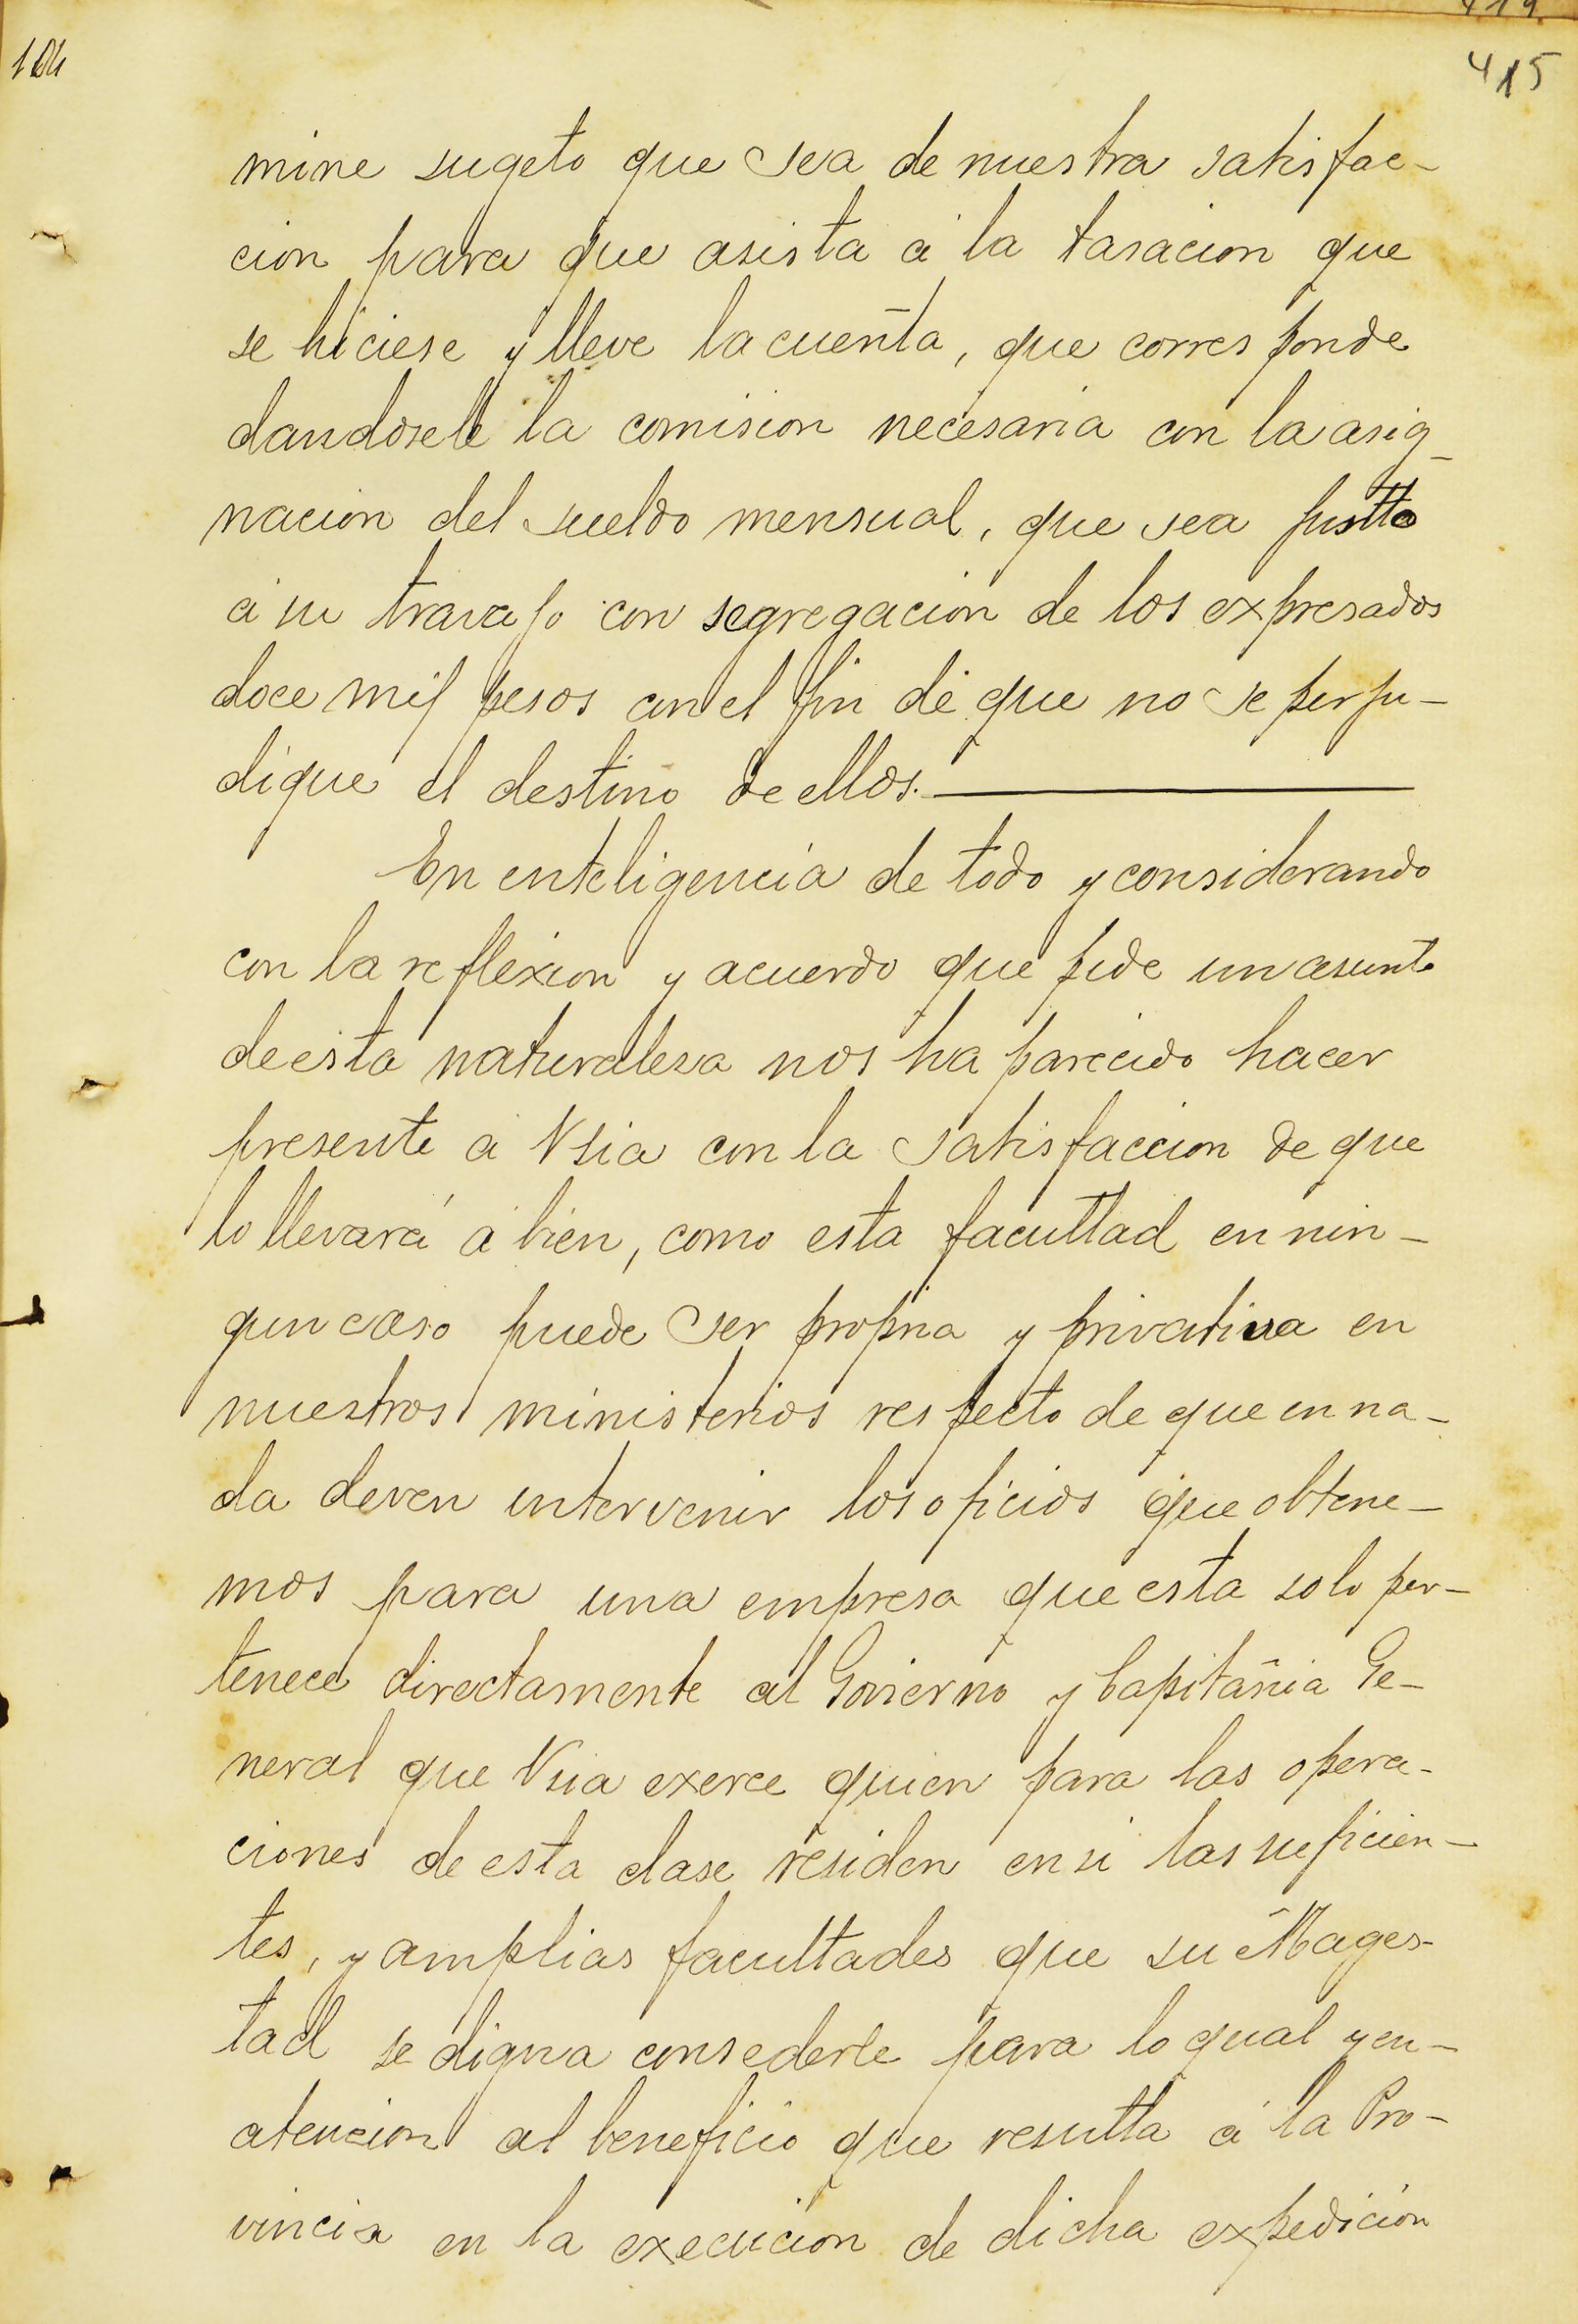 104
415
mine sugeto que sea de nuestra satisfac-
cion para que asista á la tasacion que
se hiciese y lleve la cuenta, que corresponde
dandosele la comision necesaria con la asig-
nacion del sueldo mensual, que sea justto
á su travajo con segregacion de los expresados
doce mil pesos con el fin de que no se perju-
dique el destino de ellos.
En enteligencia de todo y considerando
con la reflexion y acuerdo que pide un asunto
de esta naturalesa nos ha parecido hacer
presente a Vsia con la satisfaccion de que
lo llevará á bien, como esta facultad en nin-
gun caso puede ser propria y privativa en
nuestros ministerios respecto de que en na-
da deven intervenir los oficios que obtene-
mos para una empresa que esta solo per-
tenece directamente al Govierno y Capitañia Ge-
neral que Vsia exerce quien para las opera-
ciones de esta clase residen en si las suficien-
tes, y amplias facultades que su Mages-
tad se digna consederle para lo qual y en-
atencion al beneficio que resulta á la Pro-
vincia en la execucion de dicha expedición